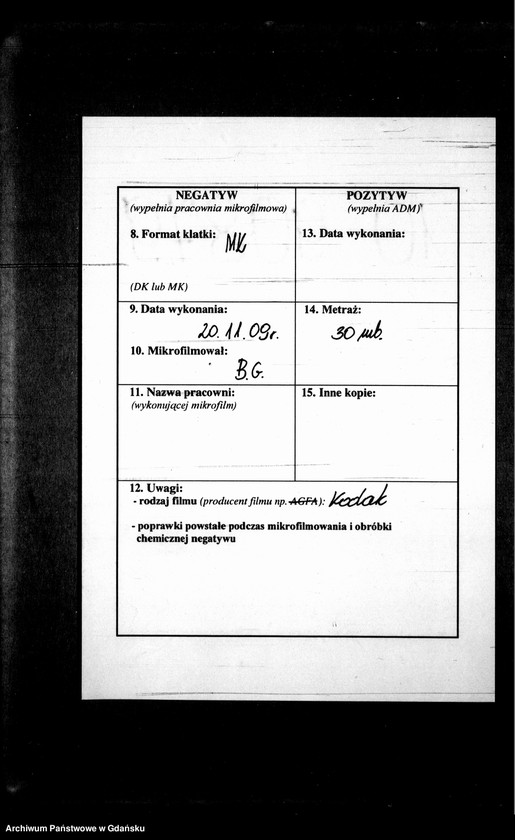 NEGATYW
(wypełnia pracownia mikrofilmowa)
8. Format klatki: MK
(DK lub MK)
9. Data wykonania:
20.11.09r.
10. Mikrofilmował:
B.G.
11. Nazwa pracowni:
(wykonującej mikrofilm)
POZYTYW
(wypełnia ADM)
13. Data wykonania:
14. Metraż:
30 mb.
15. Inne kopie:
12. Uwagi:
- rodzaj filmu (producent filmu np. AGFA): Kodak
- poprawki powstałe podczas mikrofilmowania i obróbki
chemicznej negatywu
Archiwum Państwowe w Gdańsku